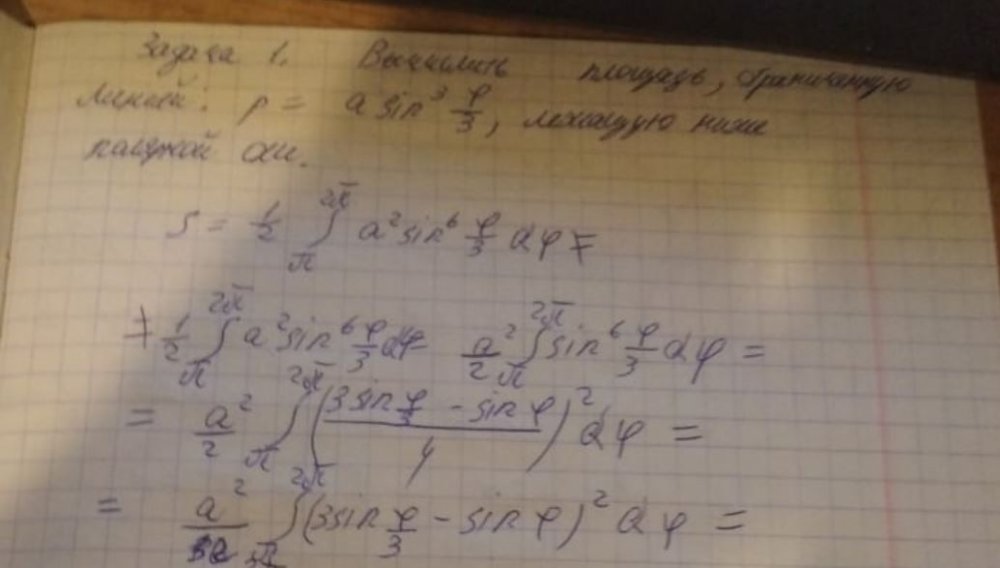 Задача 1. Вычислить площадь, ограниченную
линией: ρ = a sin³ φ/3, лежащую ниже
полярной оси.
S = 1/2 ∫_π^{2π} a² sin⁶ φ/3 dφ =
= 1/2 ∫_π^{2π} a² sin⁶ φ/3 dφ = a²/2 ∫_π^{2π} sin⁶ φ/3 dφ =
= a²/2 ∫_π^{2π} ((3 sin φ/3 - sin φ)/4)² dφ =
= a²/32 ∫_π^{2π} (3 sin φ/3 - sin φ)² dφ =